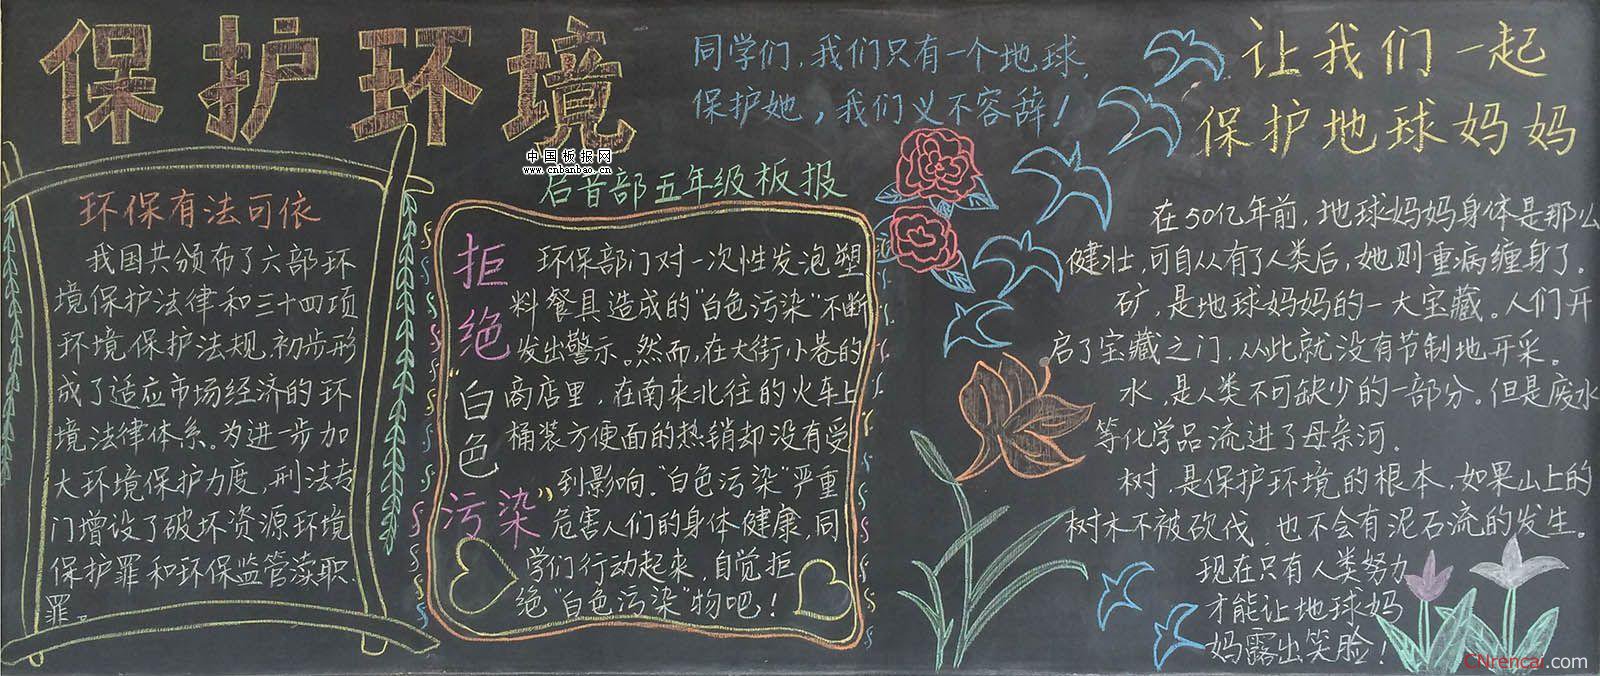 保护环境
同学们，我们只有一个地球，
保护她，我们义不容辞！
让我们一起
保护地球妈妈
中国板报网
www.cnbanbao.cn
启音部五年级板报
环保有法可依
我国共颁布了六部环
境保护法律和三十四项
环境保护法规，初步形
成了适应市场经济的环
境法律体系。为进一步加
大环境保护力度，刑法专
门增设了破坏资源环境
保护罪和环保监管渎职
罪。
拒绝"白色污染"
环保部门对一次性发泡塑
料餐具造成的"白色污染"不断
发出警示。然而，在大街小巷的
商店里，在南来北往的火车上
桶装方便面的热销却没有受
到影响。"白色污染"严重
危害人们的身体健康，同
学们行动起来，自觉拒
绝"白色污染"物吧！
在50亿年前，地球妈妈身体是那么
健壮，可自从有了人类后，她则重病缠身了。
矿，是地球妈妈的一大宝藏。人们开
启了宝藏之门，从此就没有节制地开采。
水，是人类不可缺少的一部分。但是废水
等化学品流进了母亲河。
树，是保护环境的根本，如果山上的
树木不被砍伐，也不会有泥石流的发生。
现在只有人类努力
才能让地球妈
妈露出笑脸！
CNrencai.com